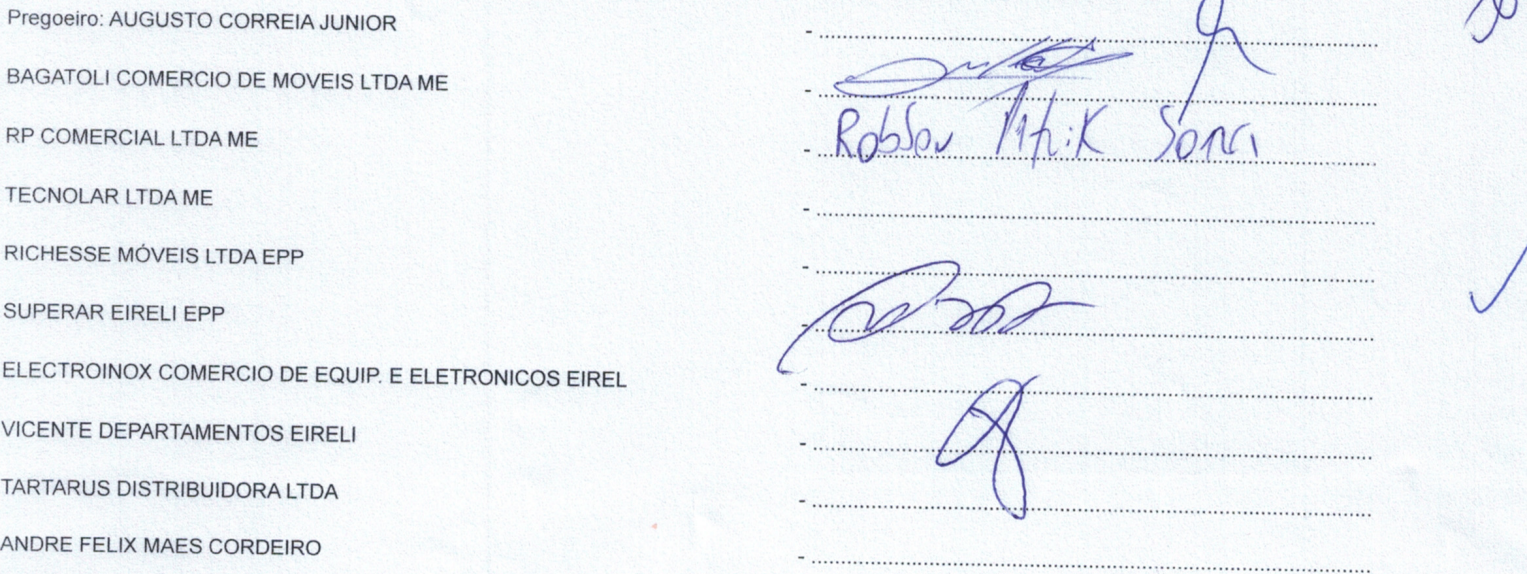 Pregoeiro: AUGUSTO CORREIA JUNIOR - ........................................
BAGATOLI COMERCIO DE MOVEIS LTDA ME - ........................................
RP COMERCIAL LTDA ME - ........................................ Robson
TECNOLAR LTDA ME - ........................................
RICHESSE MÓVEIS LTDA EPP - ........................................
SUPERAR EIRELI EPP - ........................................
ELECTROINOX COMERCIO DE EQUIP. E ELETRONICOS EIREL - ........................................
VICENTE DEPARTAMENTOS EIRELI - ........................................
TARTARUS DISTRIBUIDORA LTDA - ........................................
ANDRE FELIX MAES CORDEIRO - ........................................